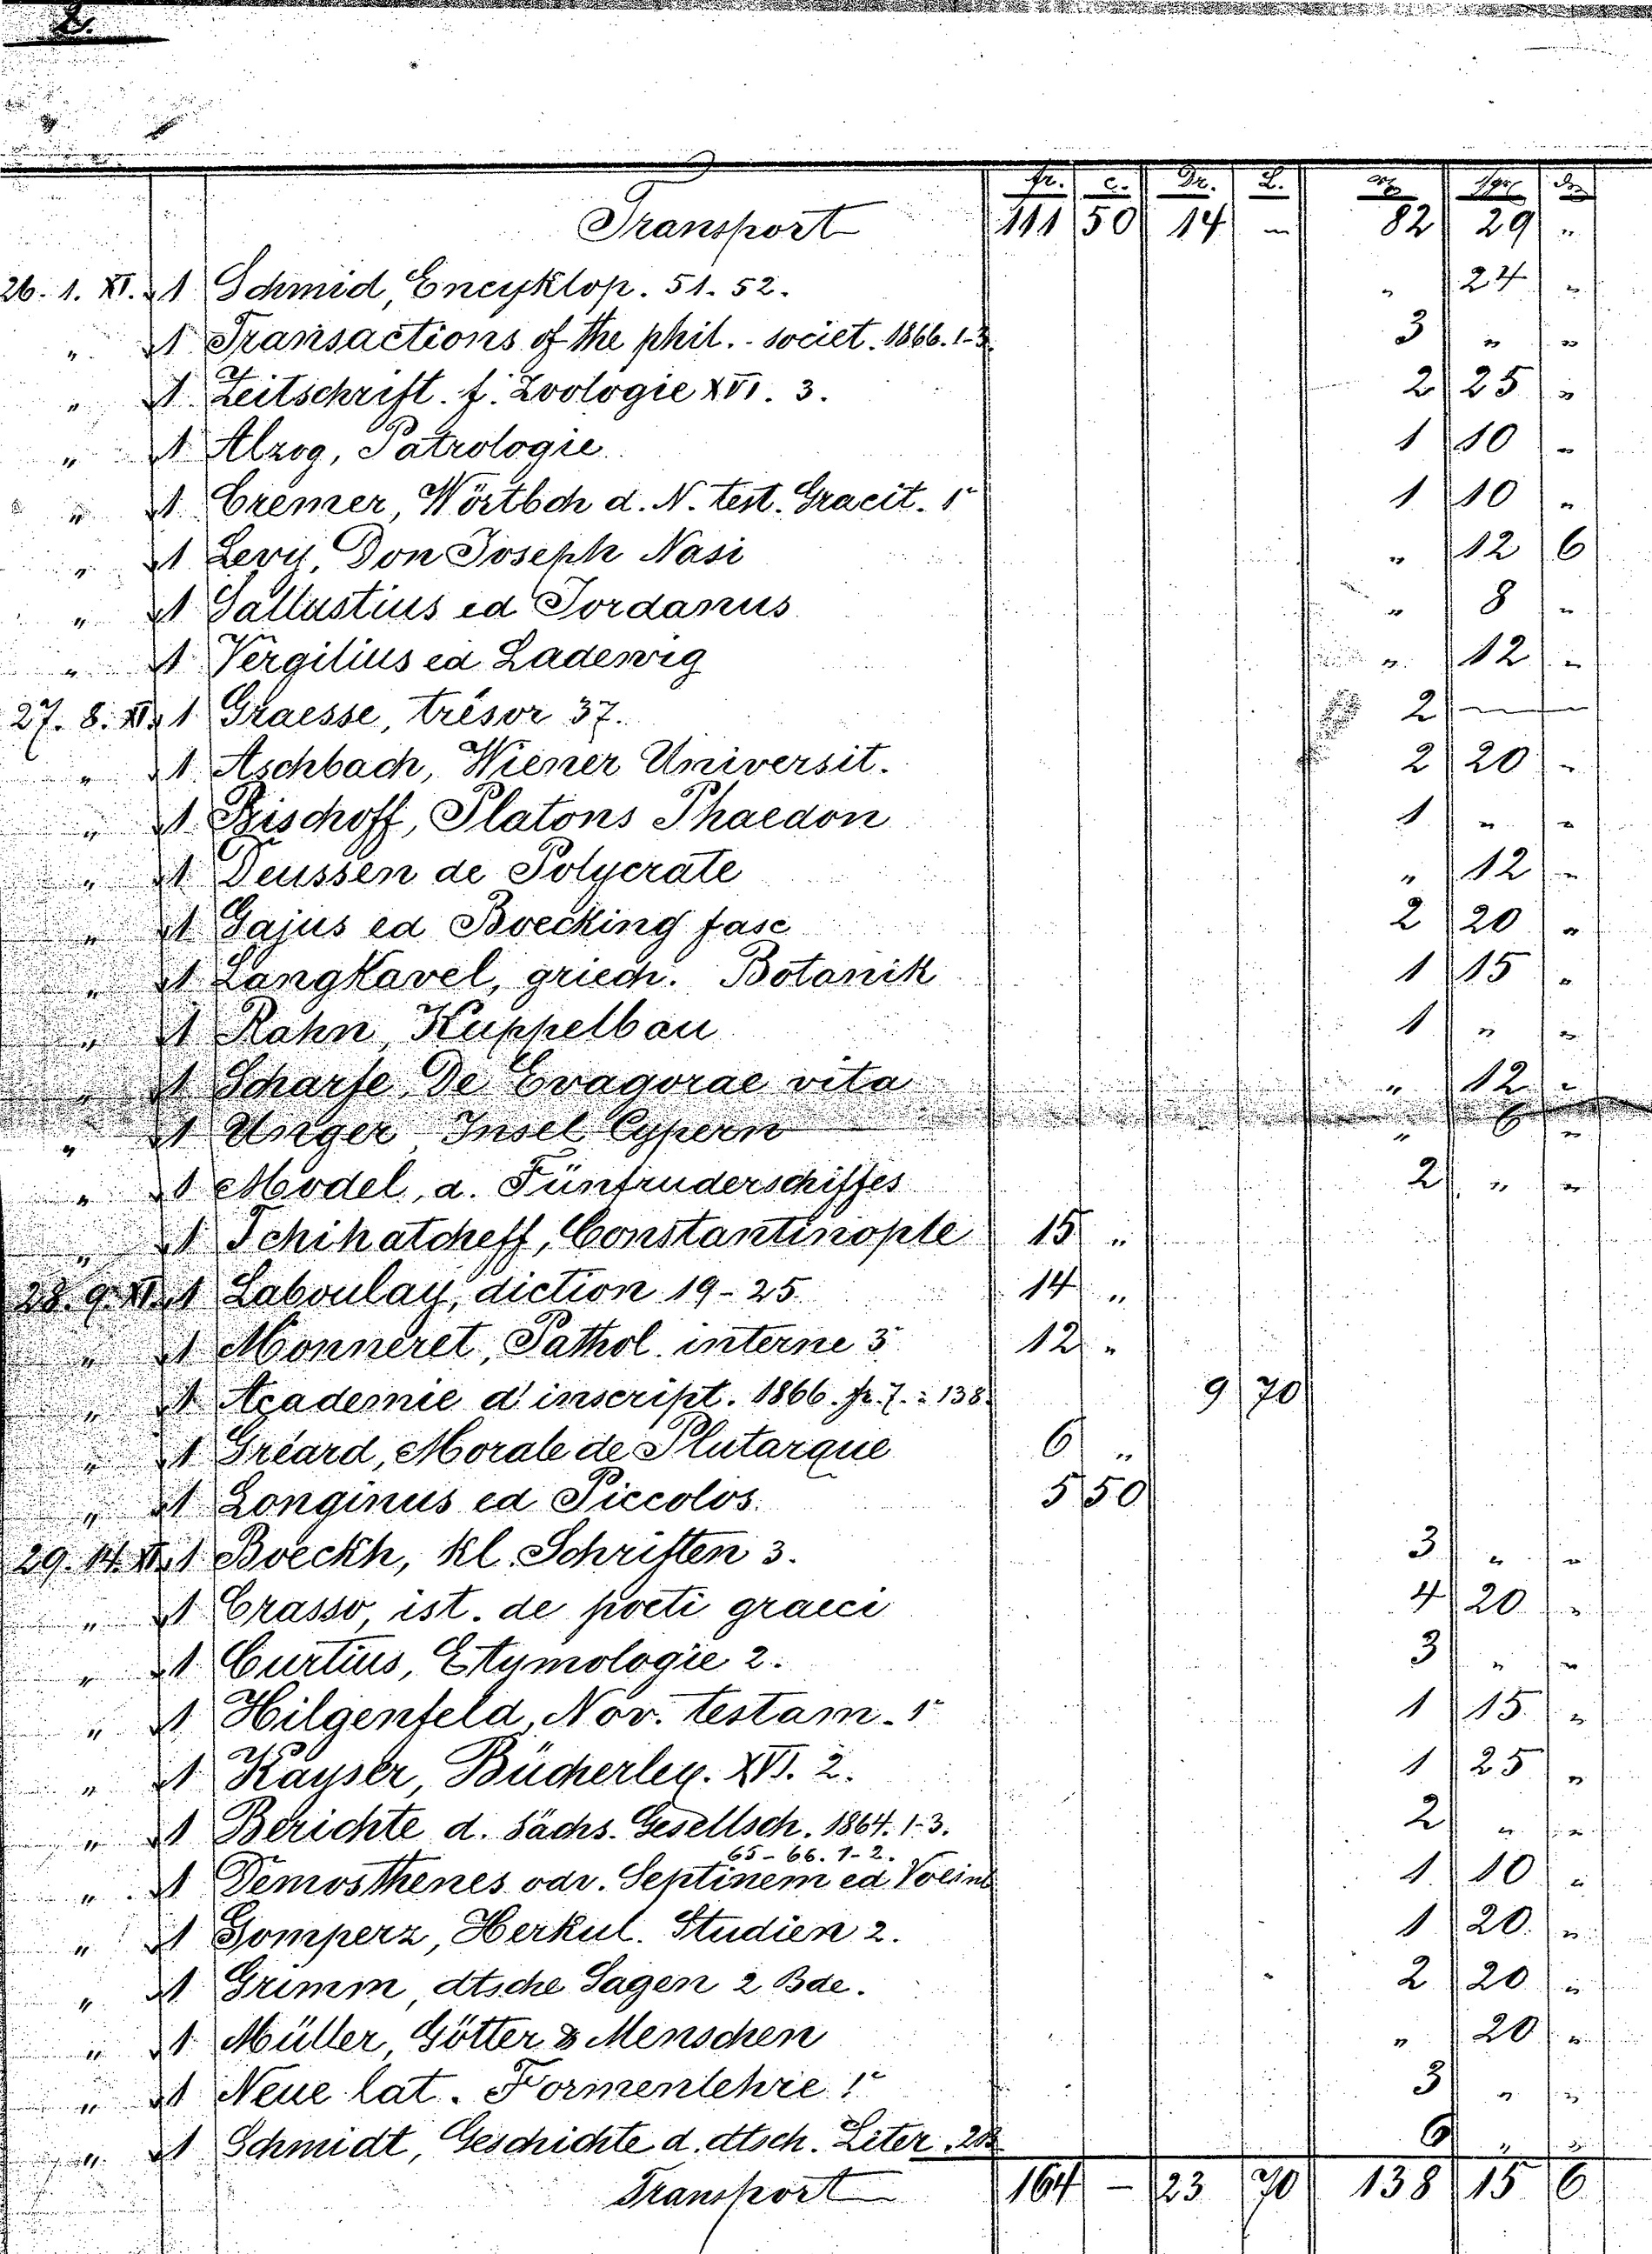 2.
fr. c. Dr. L. Sgr.
Transport 111 50 14 — 82 29 "
26. 1. XI. 1 Schmid, Encyklop. 51. 52. " 24 "
" 1 Transactions of the phil. - societ. 1866. 1-3 3 " "
" 1 Zeitschrift. f. Zoologie XVI. 3. 2 25 "
" 1 Alzog, Patrologie 1 10 "
" 1 Cremer, Wörtbch d. N. test. Gracit. 1r 1 10 "
" 1 Levy, Don Joseph Nasi " 12 6
" 1 Sallustius ed Jordanus " 8 "
" 1 Vergilius ed Ladewig " 12 "
27. 8. XI. 1 Graesse, trésor 37. 2 — —
" 1 Aschbach, Wiener Universit. 2 20 "
" 1 Bischoff, Platons Phaedon 1 " "
" 1 Deussen de Polycrate " 12 "
" 1 Gajus ed Boecking fasc 2 20 "
" 1 Langkavel, griech. Botanik 1 15 "
" 1 Rahn, Kuppelbau 1 " "
" 1 Scharfe, De Evagorae vita " 12 "
" 1 Unger Insel Cypern " 6 "
" 1 Model, a. Fünfruderschiffes 2 " "
" 1 Tchihatcheff, Constantinople 15 "
28. 9. XI. 1 Laboulay, diction 19-25 14 "
" 1 Monneret, Pathol. interne 3 12 "
" 1 Academie d'inscript. 1866. fr. 7. = 138. 9 70
" 1 Gréard, Morale de Plutarque 6 "
" 1 Longinus ed Piccolos. 5 50
29. 14. XI. 1 Boeckh, kl. Schriften 3. 3 " "
" 1 Crasso, ist. de poeti graeci 4 20 "
" 1 Curtius, Etymologie 2. 3 " "
" 1 Hilgenfeld, Nov. testam. 1r 1 15 "
" 1 Kayser, Bücherlex. XVI. 2. 1 25 "
" 1 Berichte d. Sächs. Gesellsch. 1864. 1-3. 2 " "
65-66. 1-2.
" 1 Demosthenes odv. Septinem ed Voeml 1 10 "
" 1 Gomperz, Herkul. Studien 2. 1 20 "
" 1 Grimm, dtsche Sagen 2 Bde. 2 20 "
" 1 Müller, Götter & Menschen " 20 "
" 1 Neue lat. Formenlehre 1r 3 " "
" 1 Schmidt, Geschichte d. dtsch. Liter. 6 " "
Transport 164 — 23 70 138 15 6